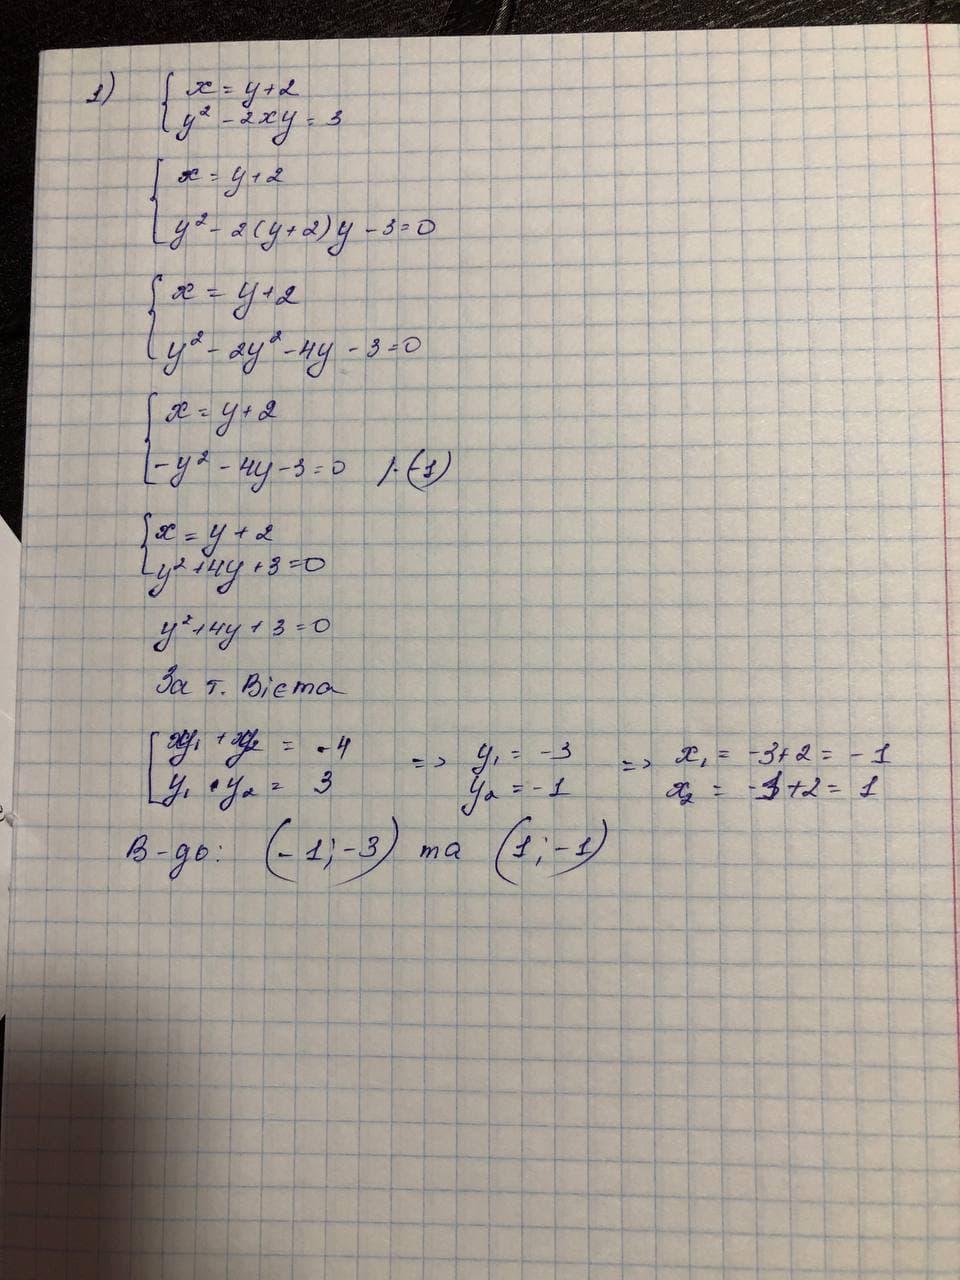 1) { x = y+2
y² - 2xy = 3
{ x = y+2
y² - 2(y+2)y - 3 = 0
{ x = y+2
y² - 2y² - 4y - 3 = 0
{ x = y+2
-y² - 4y - 3 = 0 /·(-1)
{ x = y + 2
y² + 4y + 3 = 0
y² + 4y + 3 = 0
За т. Вієта
[ y₁ + y₂ = -4 => y₁ = -3 => x₁ = -3+2 = -1
y₁ · y₂ = 3 y₂ = -1 x₂ = -1+2 = 1
В-дь: (-1; -3) та (1; -1)